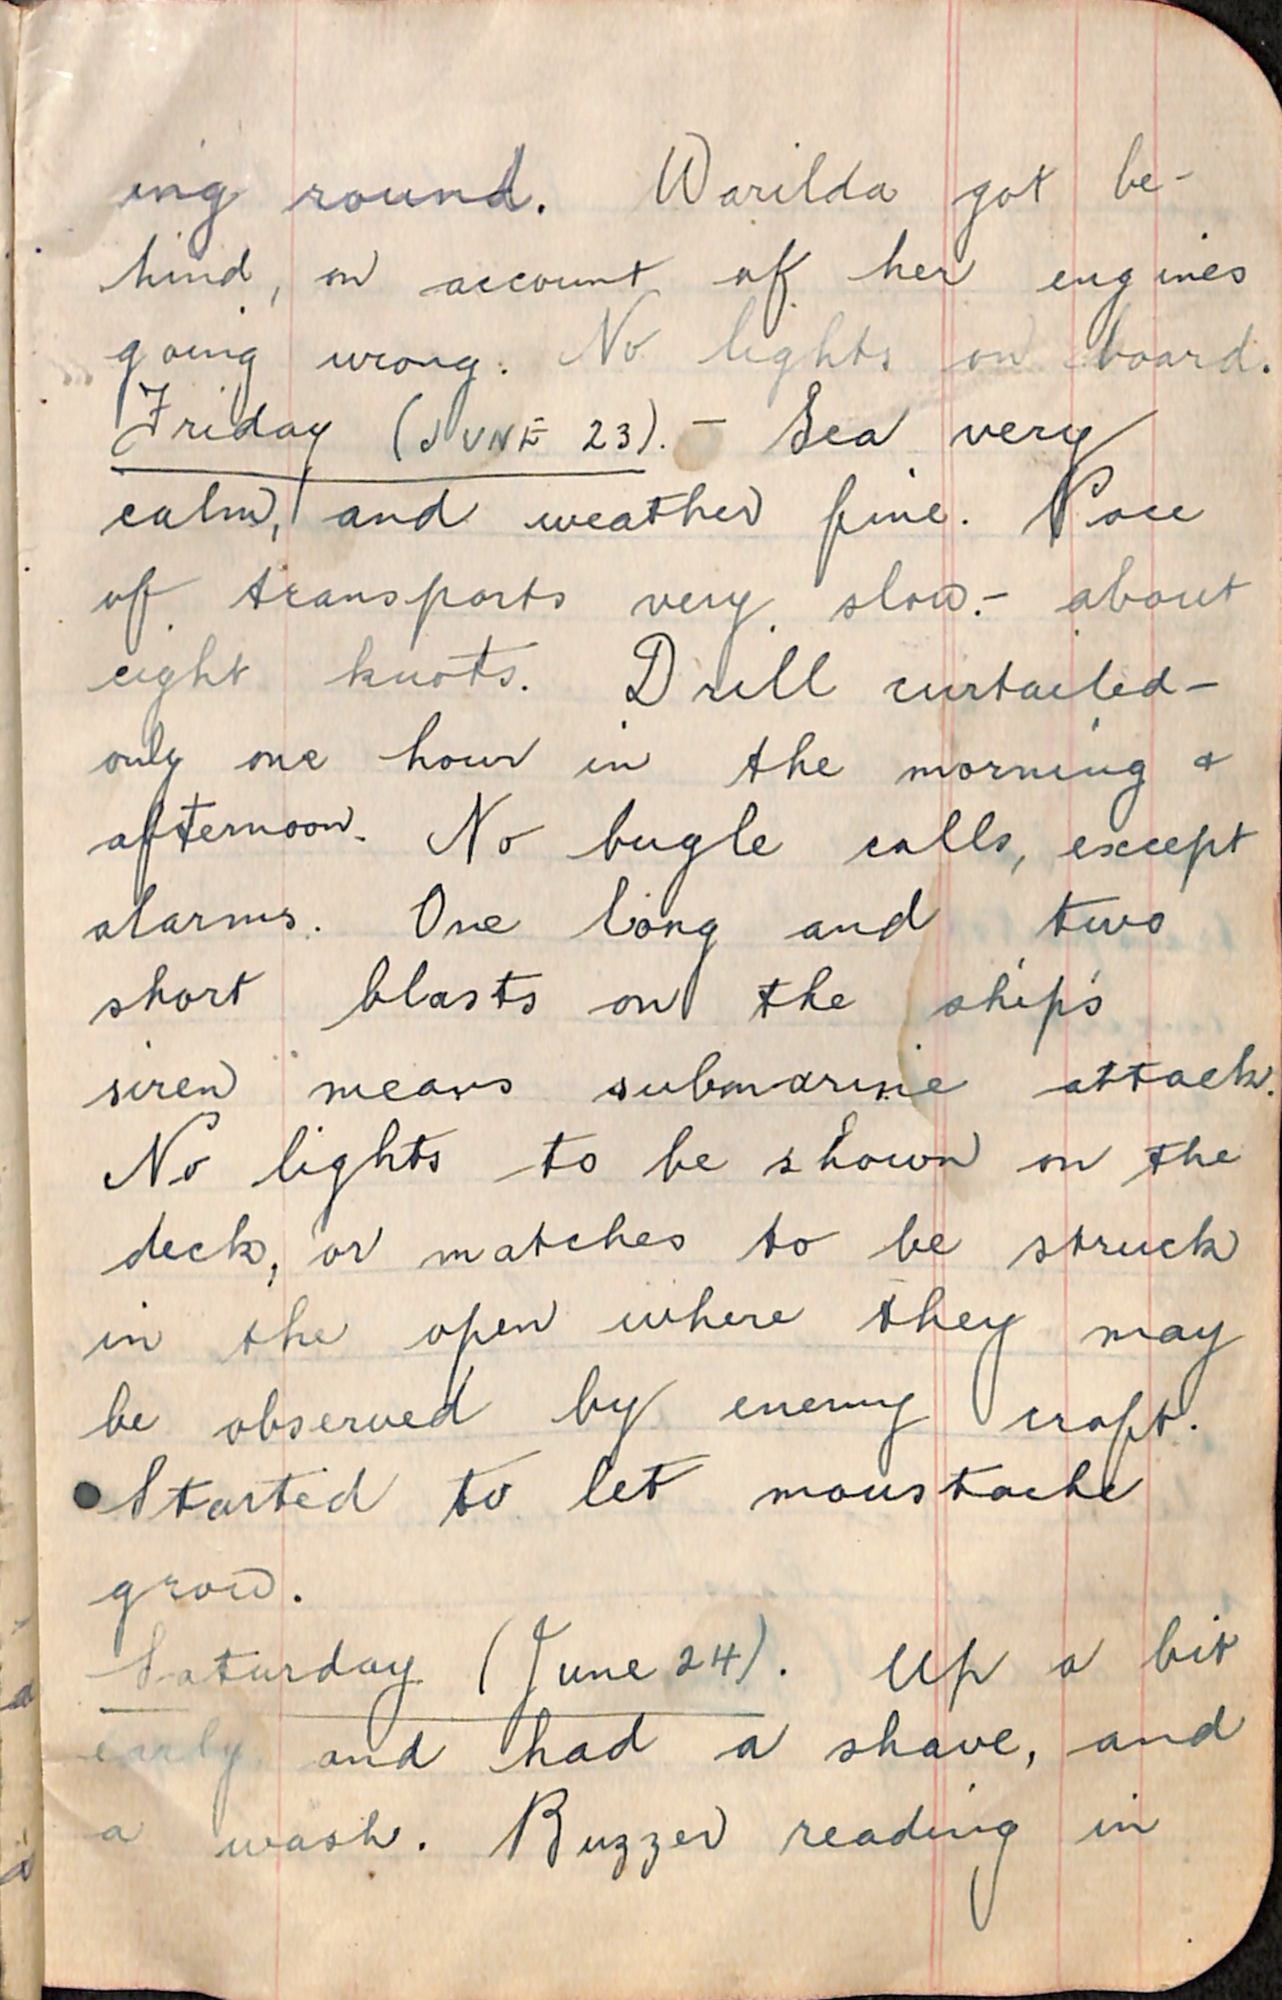 ing round. Warilda got be-
hind, on account of her engines
going wrong. No lights on board.
Friday (JUNE 23). - Sea very
calm, and weather fine. Pace
of transports very slow. - about
eight knots. Drill curtailed -
only one hour in the morning &
afternoon. No bugle calls, except
alarms. One long and two
short blasts on the ship's
siren means submarine attack.
No lights to be shown on the
deck, or matches to be struck
in the open where they may
be observed by enemy craft.
Started to let moustache
grow.
Saturday (June 24). Up a bit
early and had a shave, and
a wash. Buzzer reading in